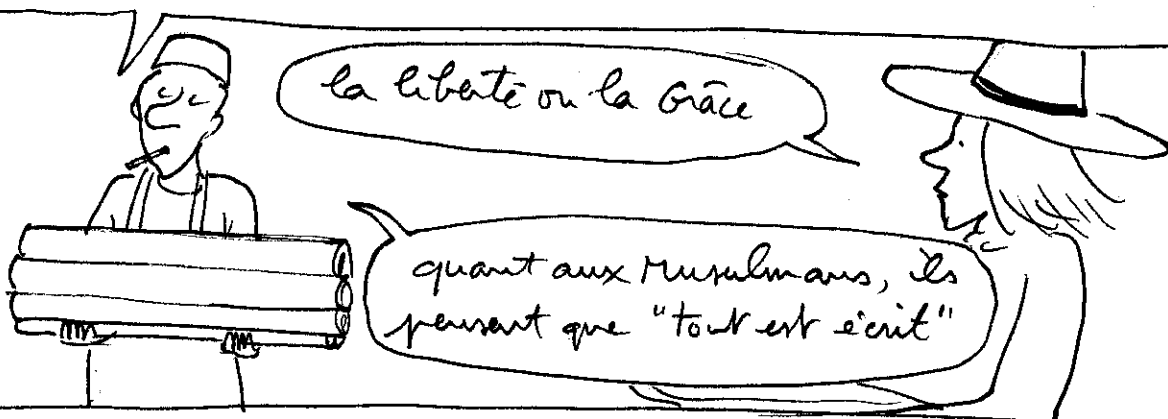 la liberté ou la Grâce
quant aux Musulmans, ils
pensent que "tout est écrit"